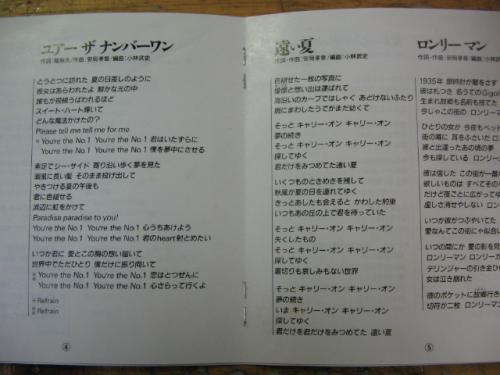 ユアー ザ ナンバーワン
作詞/作曲:安岡孝章/編曲:小林武史
とうとつに訪れた 夏の日差しのように
彼女はあらわれたよ 静かな元の中
誰もが視線うばわれるほど
スイート・ハート輝いて
どんな魔法かけたの?
Please tell me tell me for me
※ You're the No.1 You're the No.1 君はいたずらに
You're the No.1 You're the No.1 僕を夢中にさせる
素足でシー・サイド 寄り沿い歩く夢を見た
潮風に長い髪 そのまま投げ出して
やきつける夏の午後も
君に色褪せる
浜辺に虹をかけて
Paradise paradise to you!
You're the No.1 You're the No.1 心うちあけよう
You're the No.1 You're the No.1 君のheart射とめたい
いつか君に 愛とこの胸の想い届いて
世界中でただひとり 僕だけに振り向いて
※ You're the No.1 You're the No.1 恋はとつぜんに
You're the No.1 You're the No.1 心さらって行くよ
※Refrain
※Refrain
④
遠い夏
作詞・作曲:安岡孝章/編曲:小林武史
色褪せた一枚の写真に
憧憬と想い出は運ばれて
海沿いのカーブではしゃぐ あどけないふたり
雨にまわしたうでがまだ続くて
そっと キャリー・オン キャリー・オン
夢の続き
そっと キャリー・オン キャリー・オン
探してゆく
君だけをみつめてた遠い夏
いくつものときめきを残して
秋風が夏の日を連れてゆく
きっとあしたも会えると かわした約束
いつもあの丘の上で君を待っていた
そっと キャリー・オン キャリー・オン
失くしたもの
そっと キャリー・オン キャリー・オン
探してゆく
裏切りも哀しみもない世界
そっと キャリー・オン キャリー・オン
夢の続き
いま キャリー・オン キャリー・オン
探してゆく
君だけを君だけをみつめてた 遠い夏
ロンリー マン
1935年
彼はもつれ
生まれ故郷も名前も捨て
ひとりの女が 今夜もベッド
彼と出逢ったあの頃の夢
今も探している ロンリー
彼は信じた この街が一番
欲しいものは すべてその
だけど夜ごとに広がってゆ
虚しさ消せやしない ロン
いつか彼がつぶやいてた
愛なんてこの街にゃ似合い
いつの間にか 愛の影を見
ロンリーマン ロンリーガ
デリンジャーの引きがねひ
女は泣き崩れた
彼のポケットに故郷行き
切符が二枚 ロンリーマン
⑤